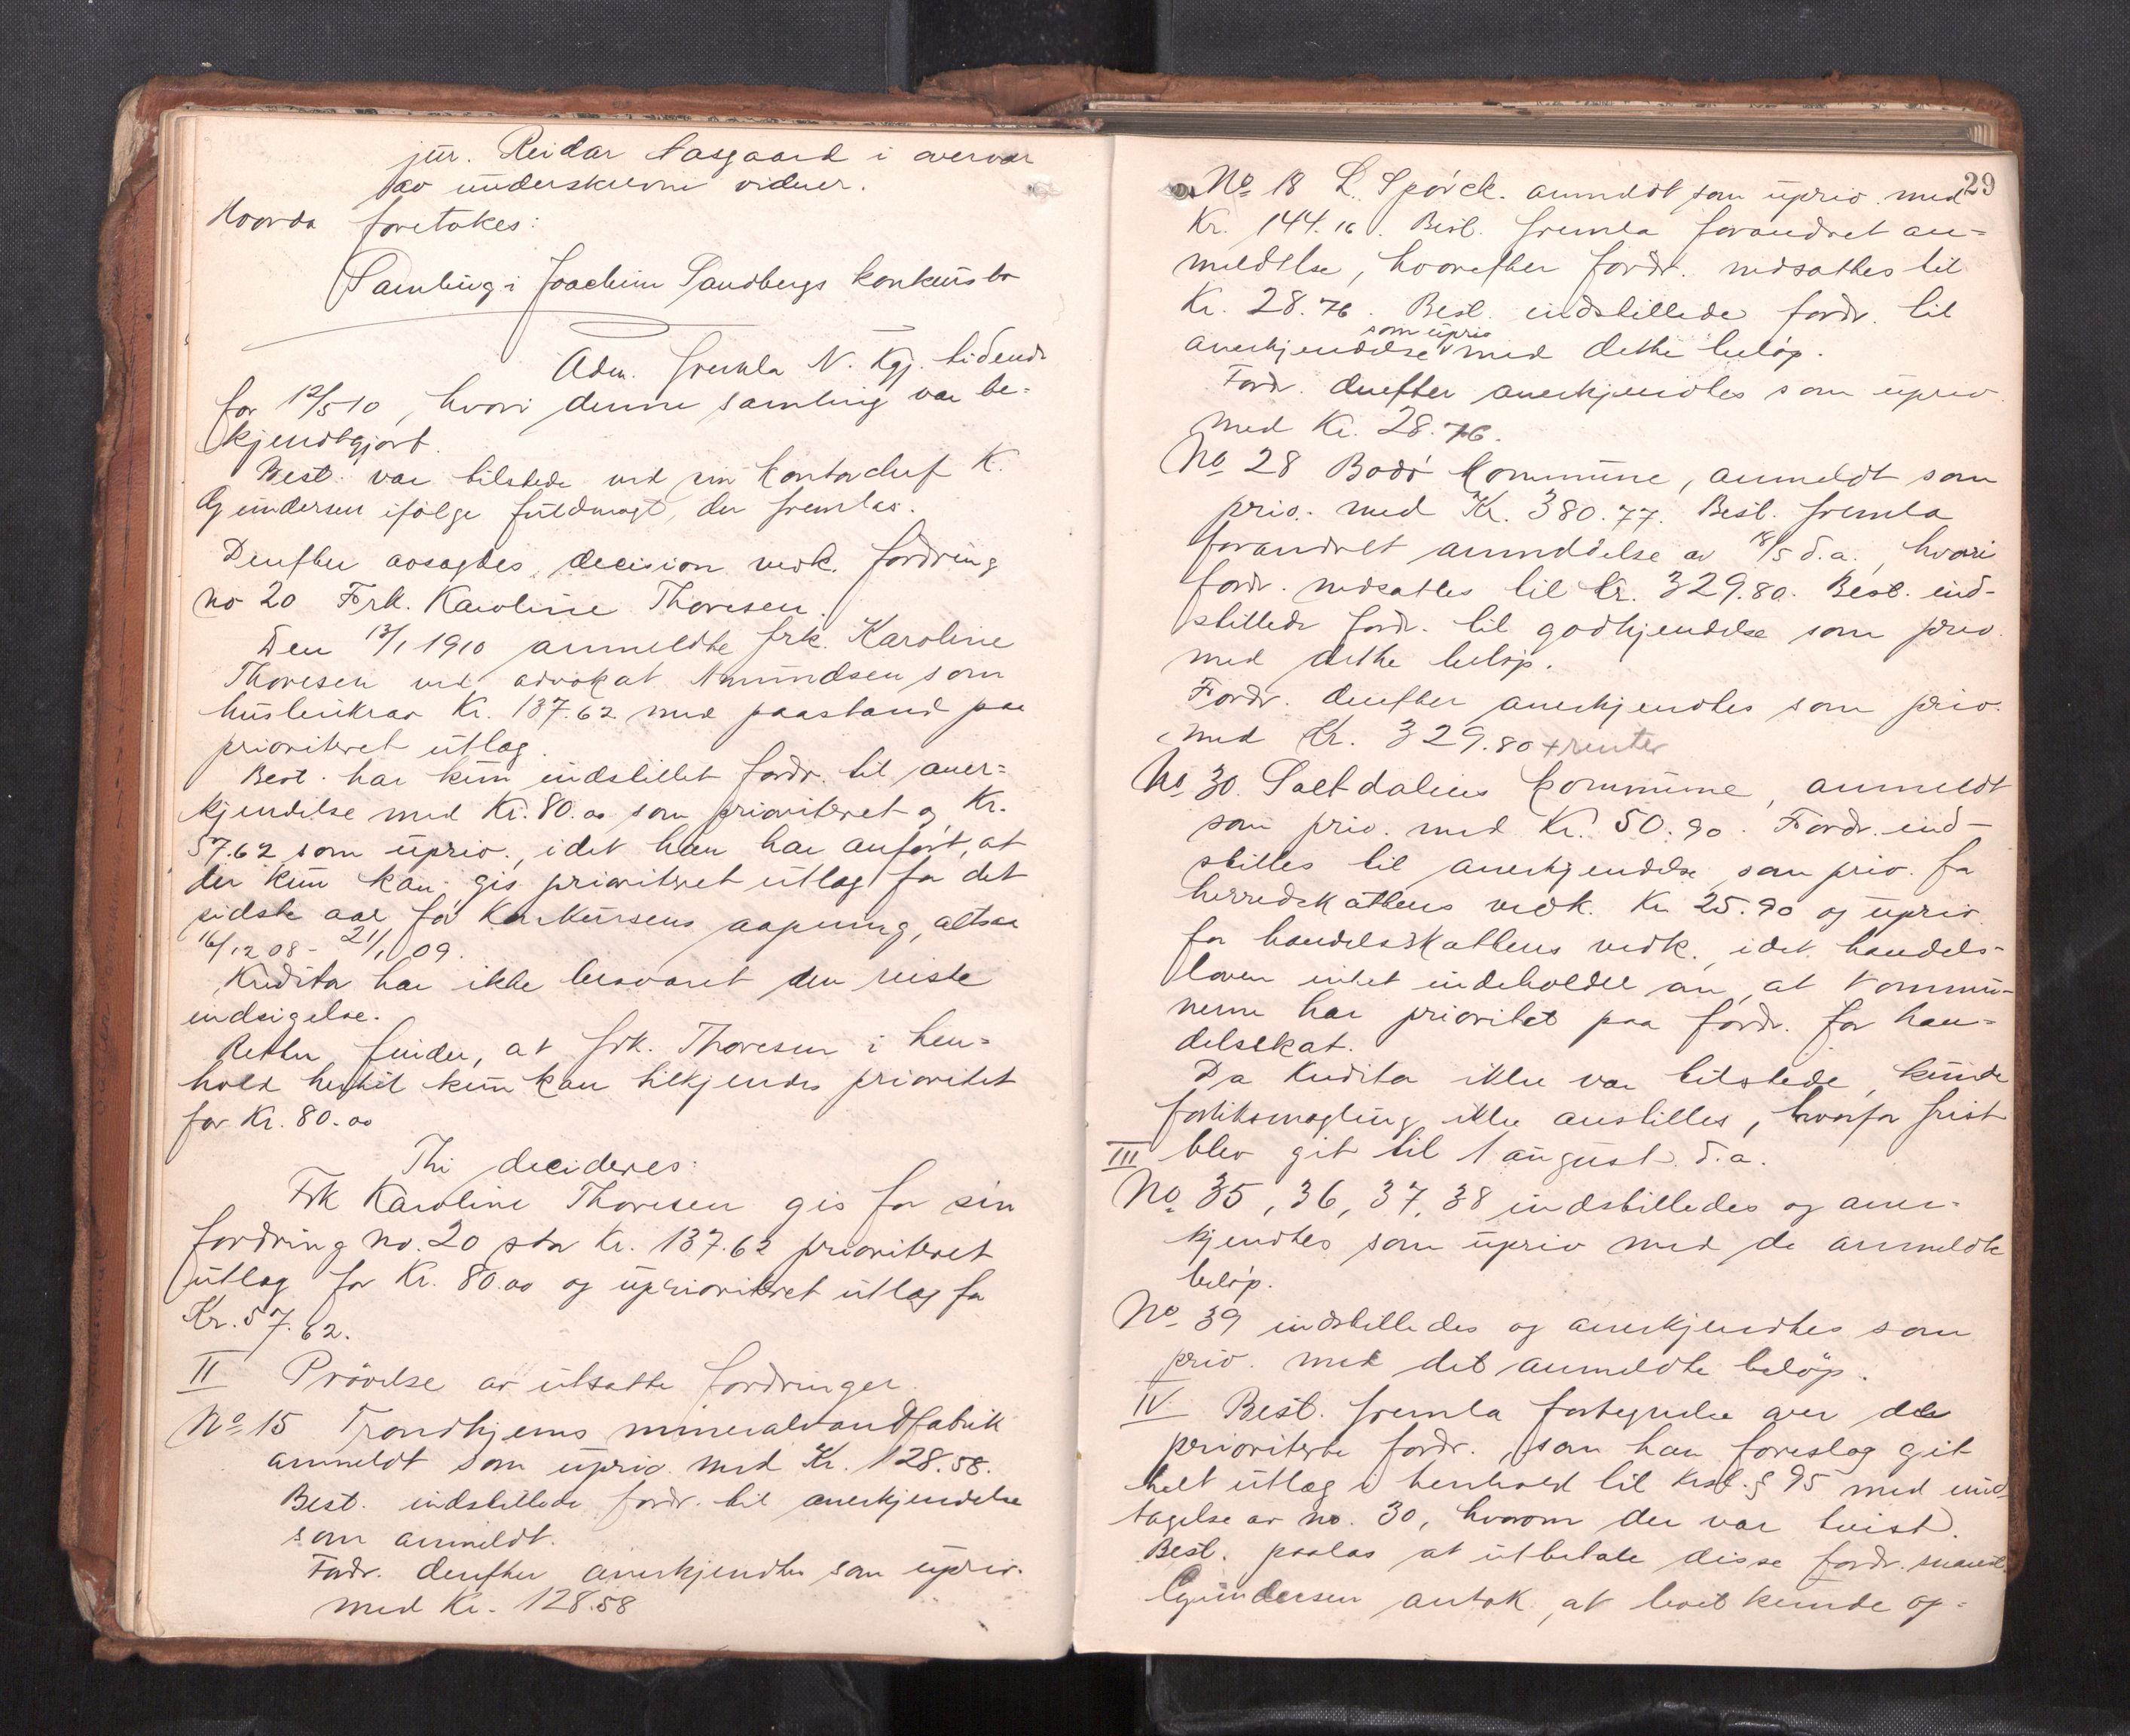 jur. Reidar Aasgaard i overvær
av underskrevne vidner.
Hvorda foretokes:
Samling i Joachim Sandbergs konkursbo
Adm. fremla N. Kgj. tidende
for 12/5 10, hvori denne samling var be-
kjendtgjort.
Best. var tilstede ved sin kontorchef K.
Gundersen ifølge fuldmagt, der fremlas.
Derefter avsagdes decision vedk. fordring
no 20 Frk. Karoline Thoresen.
Den 13/1 1910 anmeldte frk. Karoline
Thoresen ved advokat Amundsen som
husleiekrav Kr. 137.62 med paastand paa
prioritert utlæg.
Best. har kun indstillet fordr. til aner-
kjendelse med Kr. 80.00 som prioriteret og Kr.
57.62 som uprior., idet han har anført, at
der kun kan gis prioriteret utlæg for det
sidste aar før konkursens aapning, altsaa
16/12 08 - 21/1 09.
Kreditor har ikke besvaret den reiste
indsigelse.
Retten finder, at frk. Thoresen i hen-
hold hertil kun kan tilkjendes prioritet
for Kr. 80.00
Thi decideres:
Frk Karoline Thoresen gis for sin
fordring no. 20 stor Kr. 137.62 prioriteret
utlæg for Kr. 80.00 og uprioriteret utlæg for
Kr. 57.62.
II Prøvelse av utsatte fordringer
No 15 Trondhjems mineralvandfabrik
anmeldt som uprio. med Kr. 128.58.
Best. indstillede fordr. til anerkjendelse
som anmeldt.
Fordr. derefter anerkjendtes som uprior.
med Kr. 128.58
29
No 18 L. Spörck. anmeldt som uprio. med
Kr. 144.16. Best. fremla forandret an-
meldelse, hvorefter fordr. nedsattes til
Kr. 28.76. Best. indstillede fordr. til
som uprio
anerkjendelse med dette beløp.
Fordr. derefter anerkjendtes som uprio
med Kr. 28.76.
No 28 Bodø kommune, anmeldt som
prio. med Kr. 380.77. Best. fremla
forandret anmeldelse av 18/5 d.a., hvori
fordr. nedsattes til kr. 329.80. Best. ind-
stillede fordr. til godkjendelse som prio.
med dette beløp.
Fordr. derefter anerkjendtes som prio.
med Kr. 329.80 + renter
No 30. Saltdalens kommune, anmeldt
som prio. med Kr. 50.90. Fordr. ind-
stilles til anerkjendelse som prio. for
herredskattens vedk. Kr 25.90 og uprio
for handelsskattens vedk., idet handels-
loven intet indeholder om, at kommu-
nerne har prioritet paa fordr. for han-
delsskat.
Da kreditor ikke var tilstede, kunde
forliksmægling ikke anstilles, hvorfor frist
III blev git til 1 august d.a.
No 35, 36, 37, 38 indstilledes og aner-
kjendtes som uprio med de anmeldte
beløp.
No 39 indstilledes og anerkjendtes som
prio. med det anmeldte beløp.
IV Best. fremla fortegnelse over de
prioriterte fordr., som han foreslog git
helt utlæg i henhold til Ksl. § 95 med und-
tagelse av no. 30, hvorom der var tvist.
Best. paalas at utbetale disse fordr. snarest.
Gundersen antok, at boet kunde op-